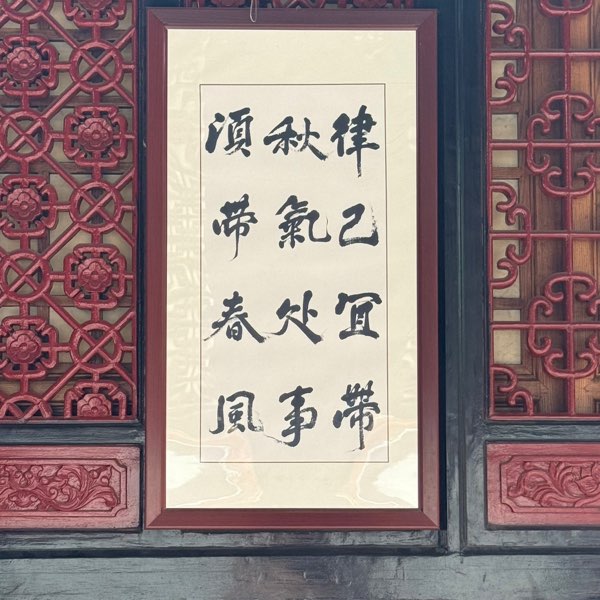 律己冝帶
秋氣处事
湏帶春風